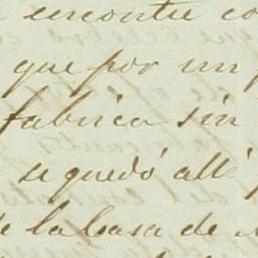 encontré co
que por un
fabrica sin
se quedó allí
de la casa de